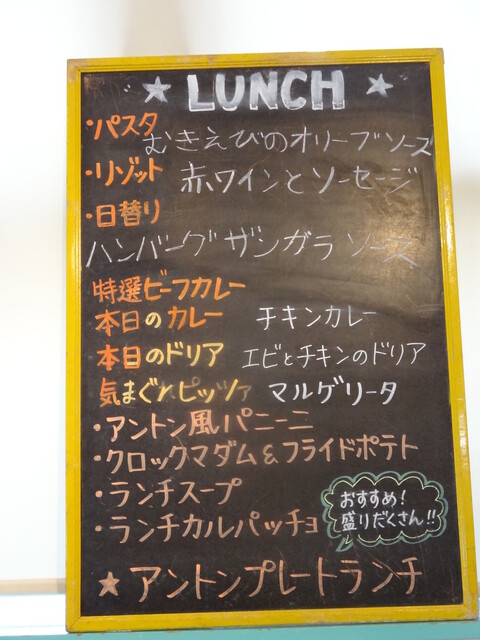 ★ LUNCH ★
・パスタ
むきえびのオリーブソース
・リゾット 赤ワインとソーセージ
・日替り
ハンバーグ ザンガラ ソース
特選ビーフカレー
本日のカレー チキンカレー
本日のドリア エビとチキンのドリア
気まぐれピッツァ マルゲリータ
・アントン風パニーニ
・クロックマダム&フライドポテト
・ランチスープ
・ランチカルパッチョ
おすすめ!
盛りだくさん!!
★ アントンプレートランチ